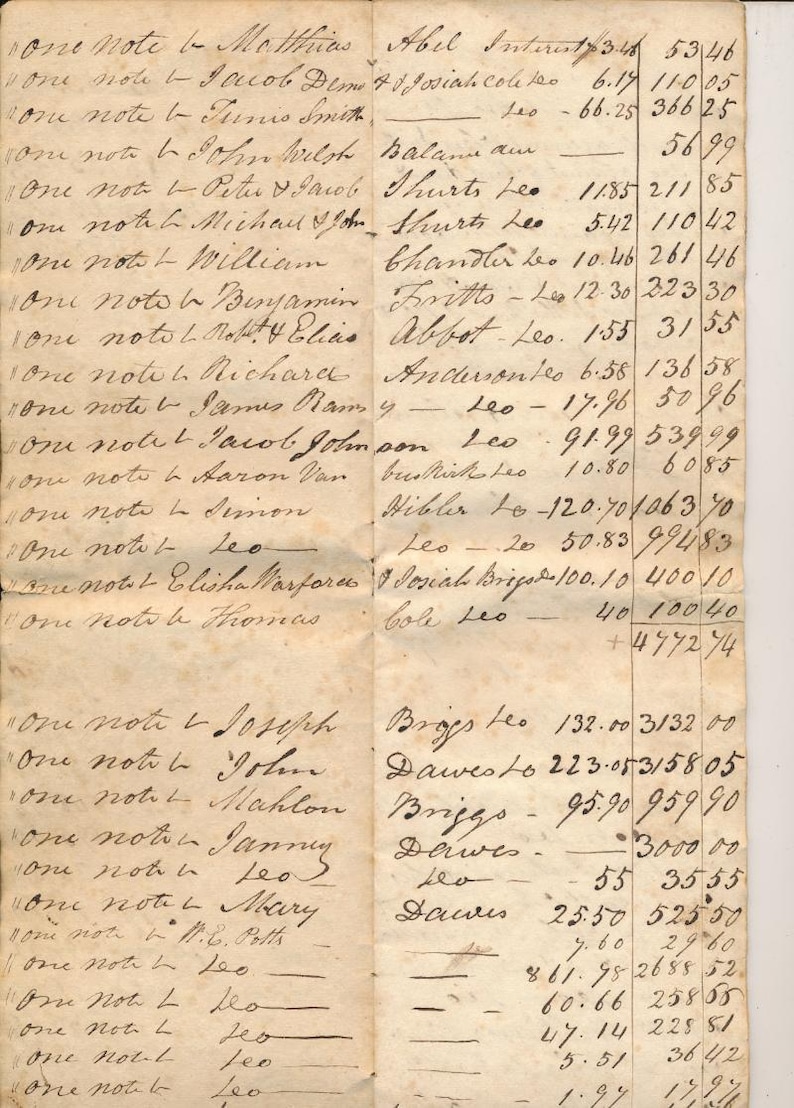 " one note to Matthias Abel Interest $3.46 53 46
" one note to Jacob Demo & Josiah Cole Do 6.17 110 05
" one note to Tunis Smith Do - 66.25 366 25
" one note to John Welsh Balance due 56 99
" one note to Peter & Jacob Shurts Do 11.85 211 85
" one note to Michael & John Shurts Do 5.42 110 42
" one note to William Chandler Do 10.46 261 46
" one note to Benjamin Fritts - Do 12.30 223 30
" one note to Robt. & Elias Abbot - Do. 1.55 31 55
" one note to Richard Anderson Do 6.58 136 58
" one note to James Ramsy - Do - 17.96 50 96
" one note to Jacob Johnson Do 91.99 539 99
" one note to Aaron Van buskirk Do 10.80 60 85
" one note to Simon Hibler Do - 120.70 1063 70
" one note to Do Do - Do 50.83 994 83
" one note to Elisha Warford & Josiah Brigs Do 100.10 400 10
" one note to Thomas Cole Do - 40 100 40
+ 4772 74
" one note to Joseph Briggs Do 132.00 3132 00
" one note to John Dawes Do 223.05 3158 05
" one note to Mahlon Briggs - 95.90 959 90
" one note to Janney Dawes - 3000 00
" one note to Do - Do - 55 35 55
" one note to Mary Dawes 25.50 525 50
" one note to W. E. Potts - 7.60 29 60
" one note to Do 861.98 2688 52
" one note to Do 60.66 258 66
" one note to Do 47.14 228 81
" one note to Do 5.51 36 42
" one note to Do 1.97 17 97